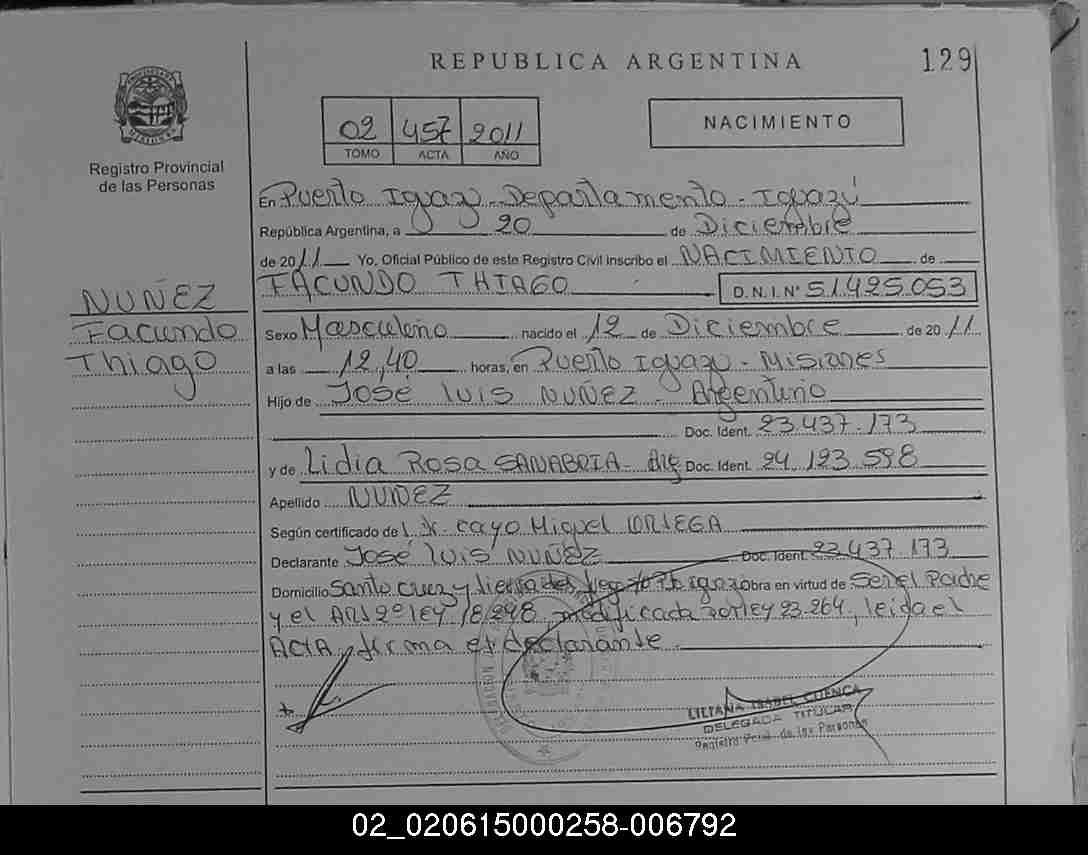 REPUBLICA ARGENTINA
129
Registro Provincial
de las Personas
02 457 2011
TOMO ACTA AÑO
NACIMIENTO
En Puerto Iguazu - Departamento - Iguazú
República Argentina, a 20 de Diciembre
de 2011 Yo, Oficial Público de este Registro Civil inscribo el NACIMIENTO de
FACUNDO THIAGO D.N.I. Nº 51.425.053
NUÑEZ
Facundo
Thiago
Sexo Masculino nacido el 12 de Diciembre de 2011
a las 12,40 horas, en Puerto Iguazu - Misiones
Hijo de José Luis NUÑEZ - Argentino
Doc. Ident. 23.437.173
y de Lidia Rosa SANABRIA - Arg Doc. Ident. 24.123.598
Apellido NUÑEZ
Según certificado de Cayo Miguel ORTEGA
Declarante José Luis NUÑEZ Doc. Ident. 23.437.173
Domicilio Santa Cruz y Tierra del Obra en virtud de Ser el Padre
y el ART 2º LEY 18.248, modificada por LEY 23.264, leida el
ACTA, firma el declarante
LILIANA ISABEL CUENCA
DELEGADA TITULAR
Registro Prov. de las Personas
02_020615000258-006792